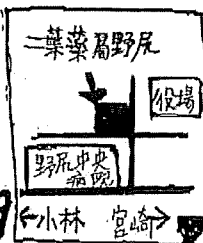 二葉薬局野尻
役場
野尻中央
病院
←小林 宮崎→